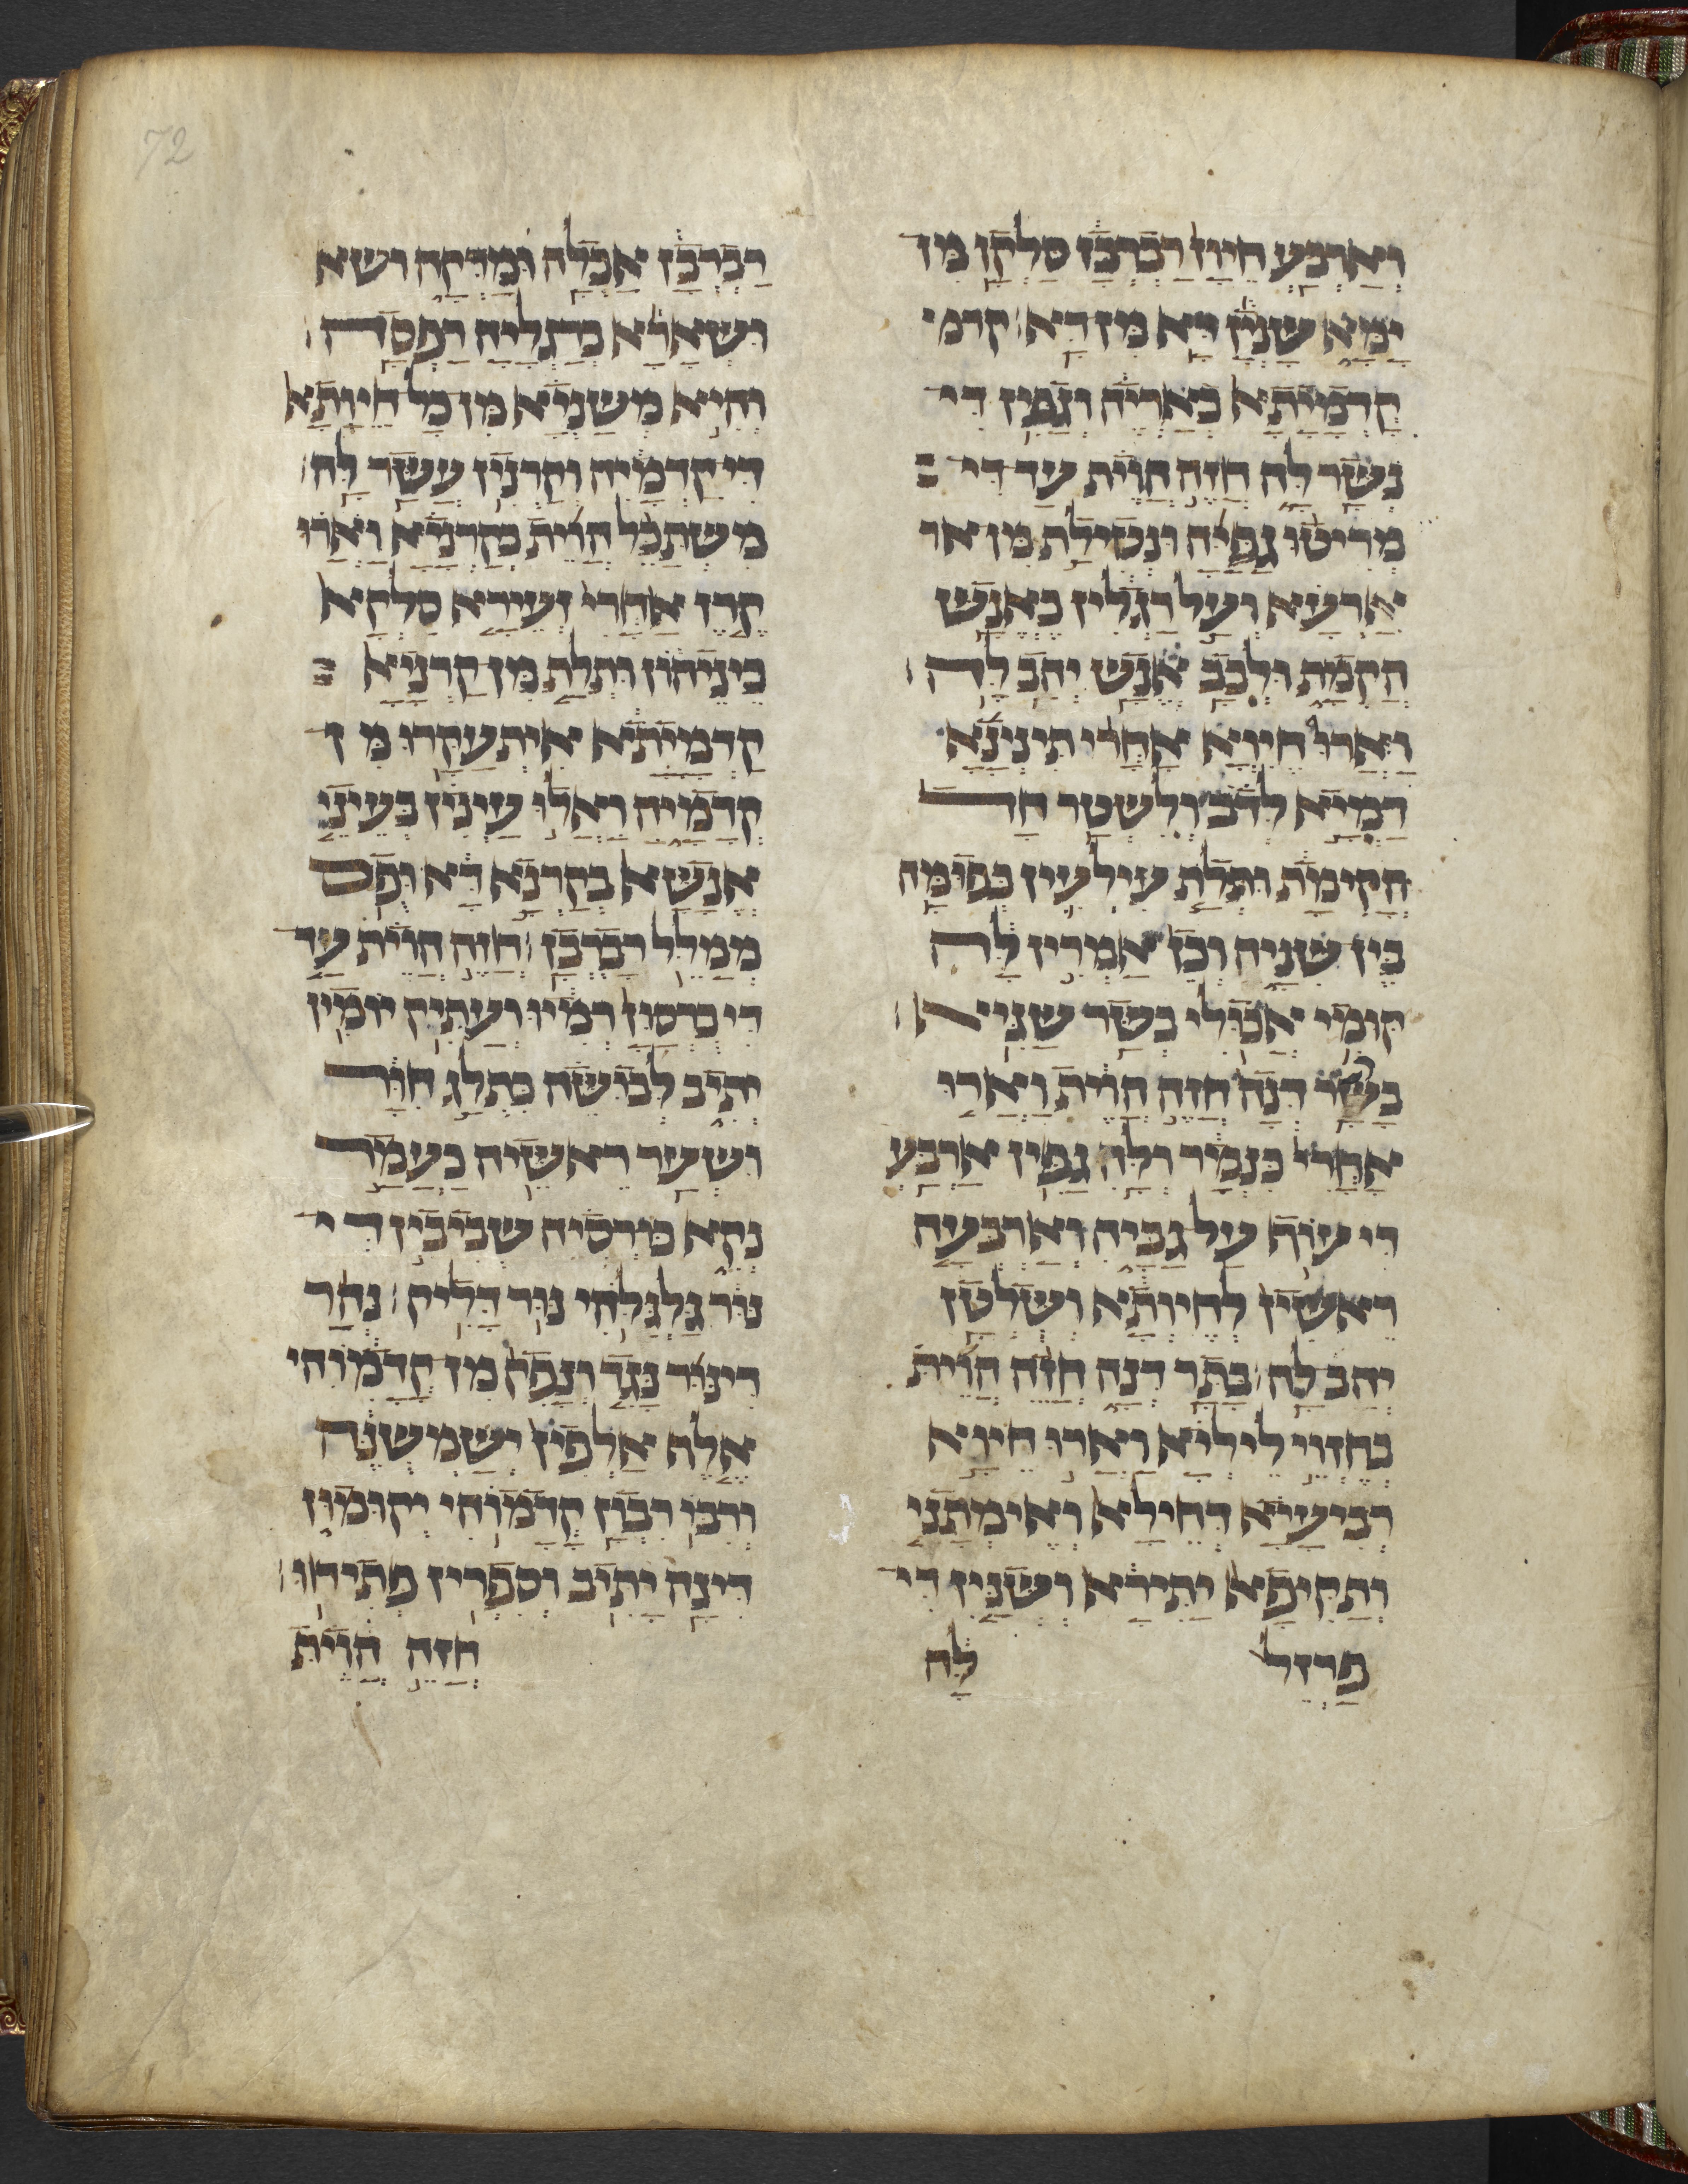 וארבע חיון רברבן סלקן מן
ימא שנין דא מן דא קדמי
קדמיתא כאריה וגפין די
נשר לה חזה הוית עד די
מריטו גפיה ונטילת מן אר
ארעא ועל רגלין כאנש
הקמת ולבב אנש יהב לה
וארו חיוא אחרי תינינא
דמיא לדב ולשטר חד
הקימת ותלת עילעין בפומה
בין שניה וכן אמרין לה
קומי אכולי בשר שגיא
דנה חזה הוית וארו
אחרי כנמר ולה גפין ארבע
די עוף על גביה וארבעה
ראשין לחיותא ושלטן
יהב לה בתר דנה חזה הוית
בחזוי ליליא וארו חיוא
רביעיא דחילא ואימתני
ותקיפא יתירא ושנין די
פרזל לה
רברבן אכלה ומדקה ושא
ושארא ברגליה רפסה
והיא משניא מן כל חיותא
די קדמיה וקרנין עשר לה
משתכל הוית בקרניא וארו
קרן אחרי זעירא סלקא
ביניהון ותלת מן קרניא
קדמיתא איתעקרו מן
קדמיה ואלו עינין בעיני
אנשא בקרנא דא ופם
ממלל רברבן חזה הוית עד
די כרסון רמיו ועתיק יומין
יתיב לבושה כתלג חור
ושער ראשיה כעמר
נקא כורסיה שביבין די
נור גלגלהי נור דליק נהר
דינור נגד ונפק מן קדמוהי
אלף אלפין ישמשנה
ורבו רבון קדמוהי יקומון
דינה יתיב וספרין פתיחו
חזה הוית
72